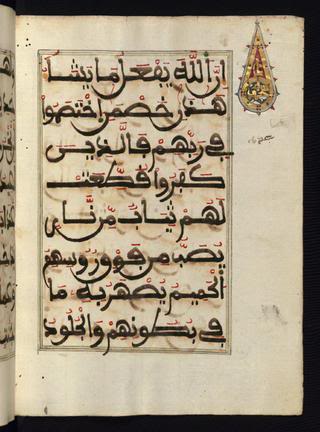 إن ٱللَّه يفعل ما يشاء
هذٰن خصمٰن ٱختصموا
في ربهم فالذين
كفروا قطعت
لهم ثياب من نار
يصب من فوق رءوسهم
ٱلحميم يصهر به ما
في بطونهم والجلود